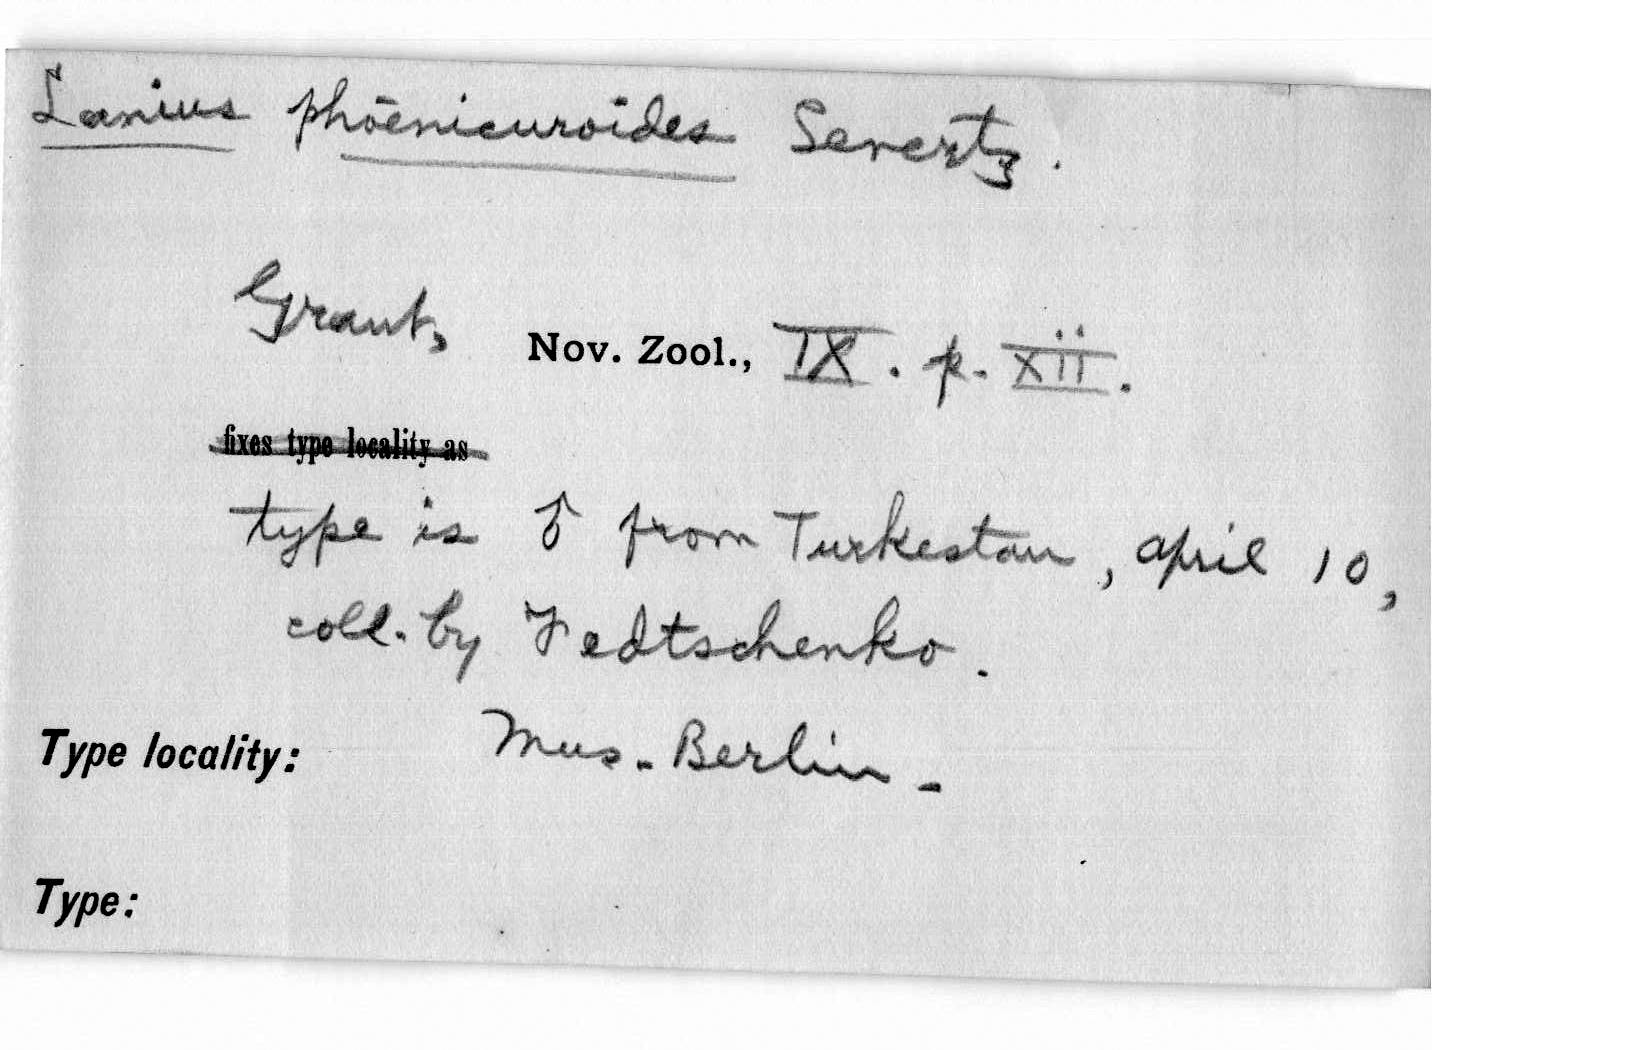 Lanius phōenicuroides Severtz.
Grant, Nov. Zool., IX. p. xii.
fixes type locality as
type is ♂ from Turkestan, april 10,
coll. by Fedtschenko.
Type locality: Mus. Berlin.
Type: